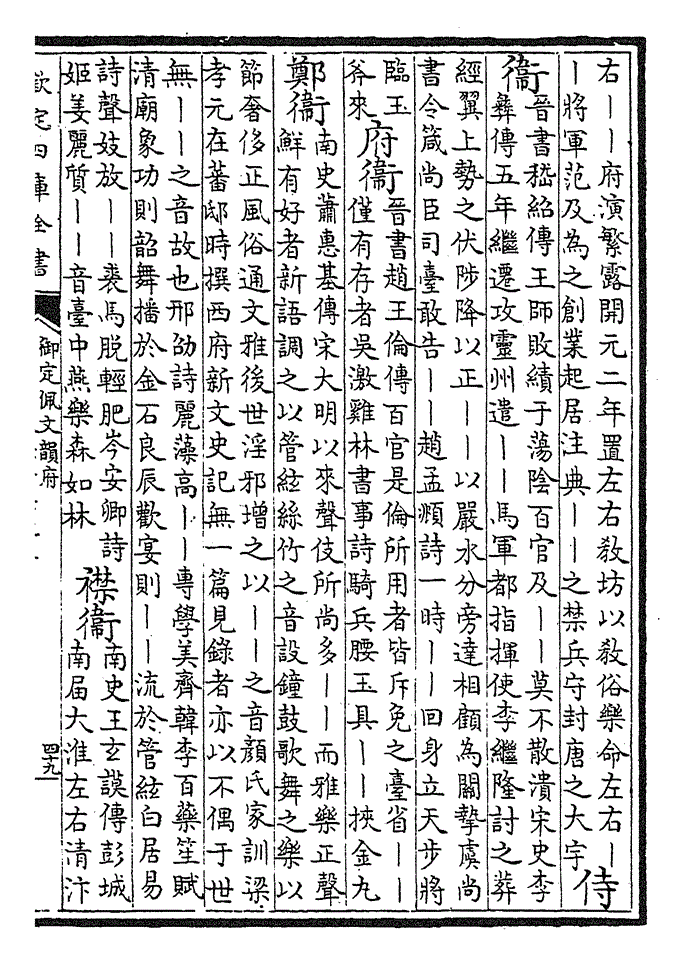 右——府演繁露開元二年置左右敎坊以敎俗樂命左右—
—將軍范及為之創業起居注典——之禁兵守封唐之大字
侍
衛
晉書嵇紹傳王師敗績于蕩陰百官及——莫不散潰宋史李
彝傳五年繼遷攻靈州遣——馬軍都指揮使李繼隆討之葬
經翼上勢之伏陟降以正——以嚴水分旁達相顧為關摯虞尚
書令箴尚臣司臺敢告——趙孟頫詩一時——回身立天步將
臨玉
斧來
府衛
晉書趙王倫傳百官是倫所用者皆斥免之臺省——
僅有存者吳激雞林書事詩騎兵腰玉具——挾金九
鄭衛
南史蕭惠基傳宋大明以來聲伎所尚多——而雅樂正聲
鮮有好者新語調之以管絃絲竹之音設鐘鼓歌舞之樂以
節奢侈正風俗通文雅後世淫邪增之以——之音顏氏家訓梁
孝元在蕃邸時撰西府新文史記無一篇見錄者亦以不偶于世
無——之音故也邢劭詩麗藻高——專學美齊韓李百藥笙賦
清廟象功則韶舞播於金石良辰歡宴則——流於管絃白居易
詩聲妓放——裘馬脫輕肥岑安卿詩
姬姜麗質——音臺中燕樂森如林
襟衛
南史王玄謨傳彭城
南届大淮左右清汴
欽定四庫全書
御定佩文韻府
四十九